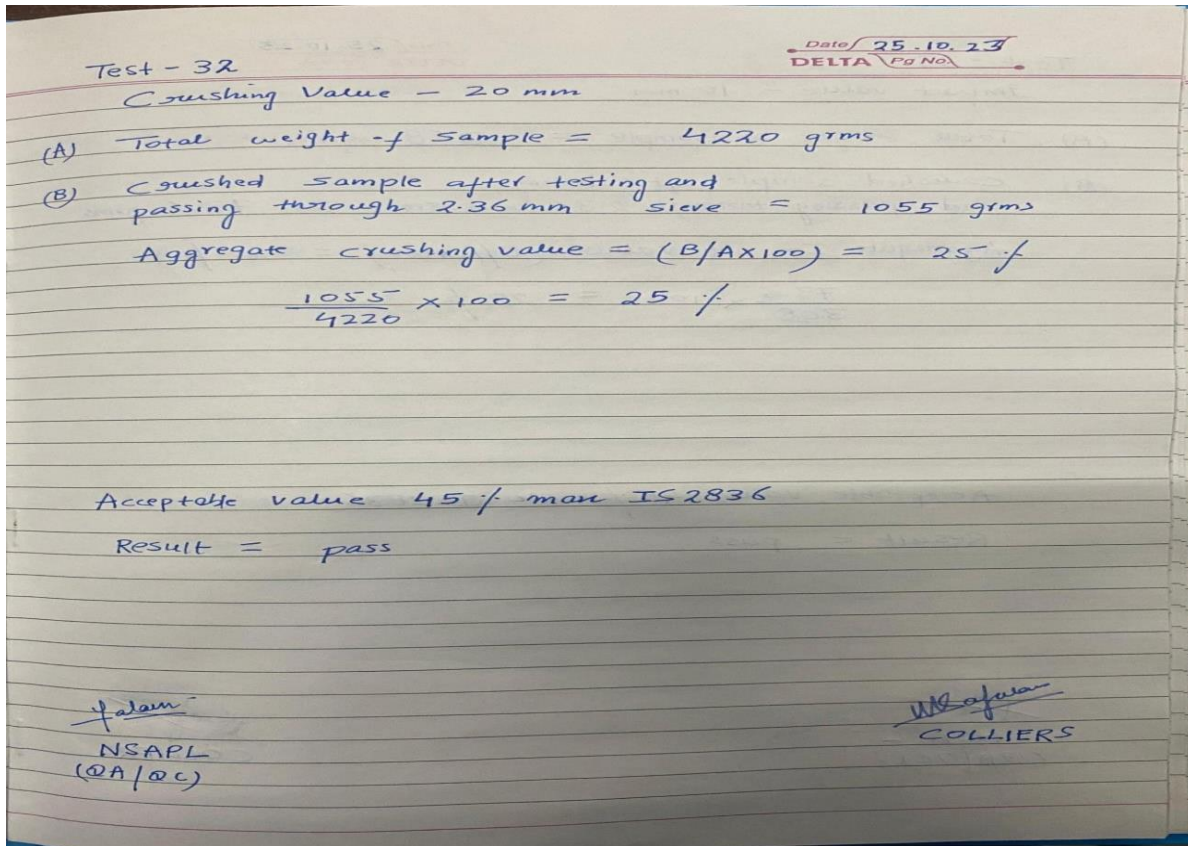 Date 25.10.23
DELTA Pg No.
Test - 32
Crushing Value - 20 mm
(A) Total weight of Sample = 4220 grms
(B) Crushed sample after testing and
passing through 2.36 mm sieve = 1055 grms
Aggregate crushing value = (B/A×100) = 25 %
1055
4220 × 100 = 25 %
Acceptable value 45 % max IS 2836
Result = pass
NSAPL
COLLIERS
(QA/QC)